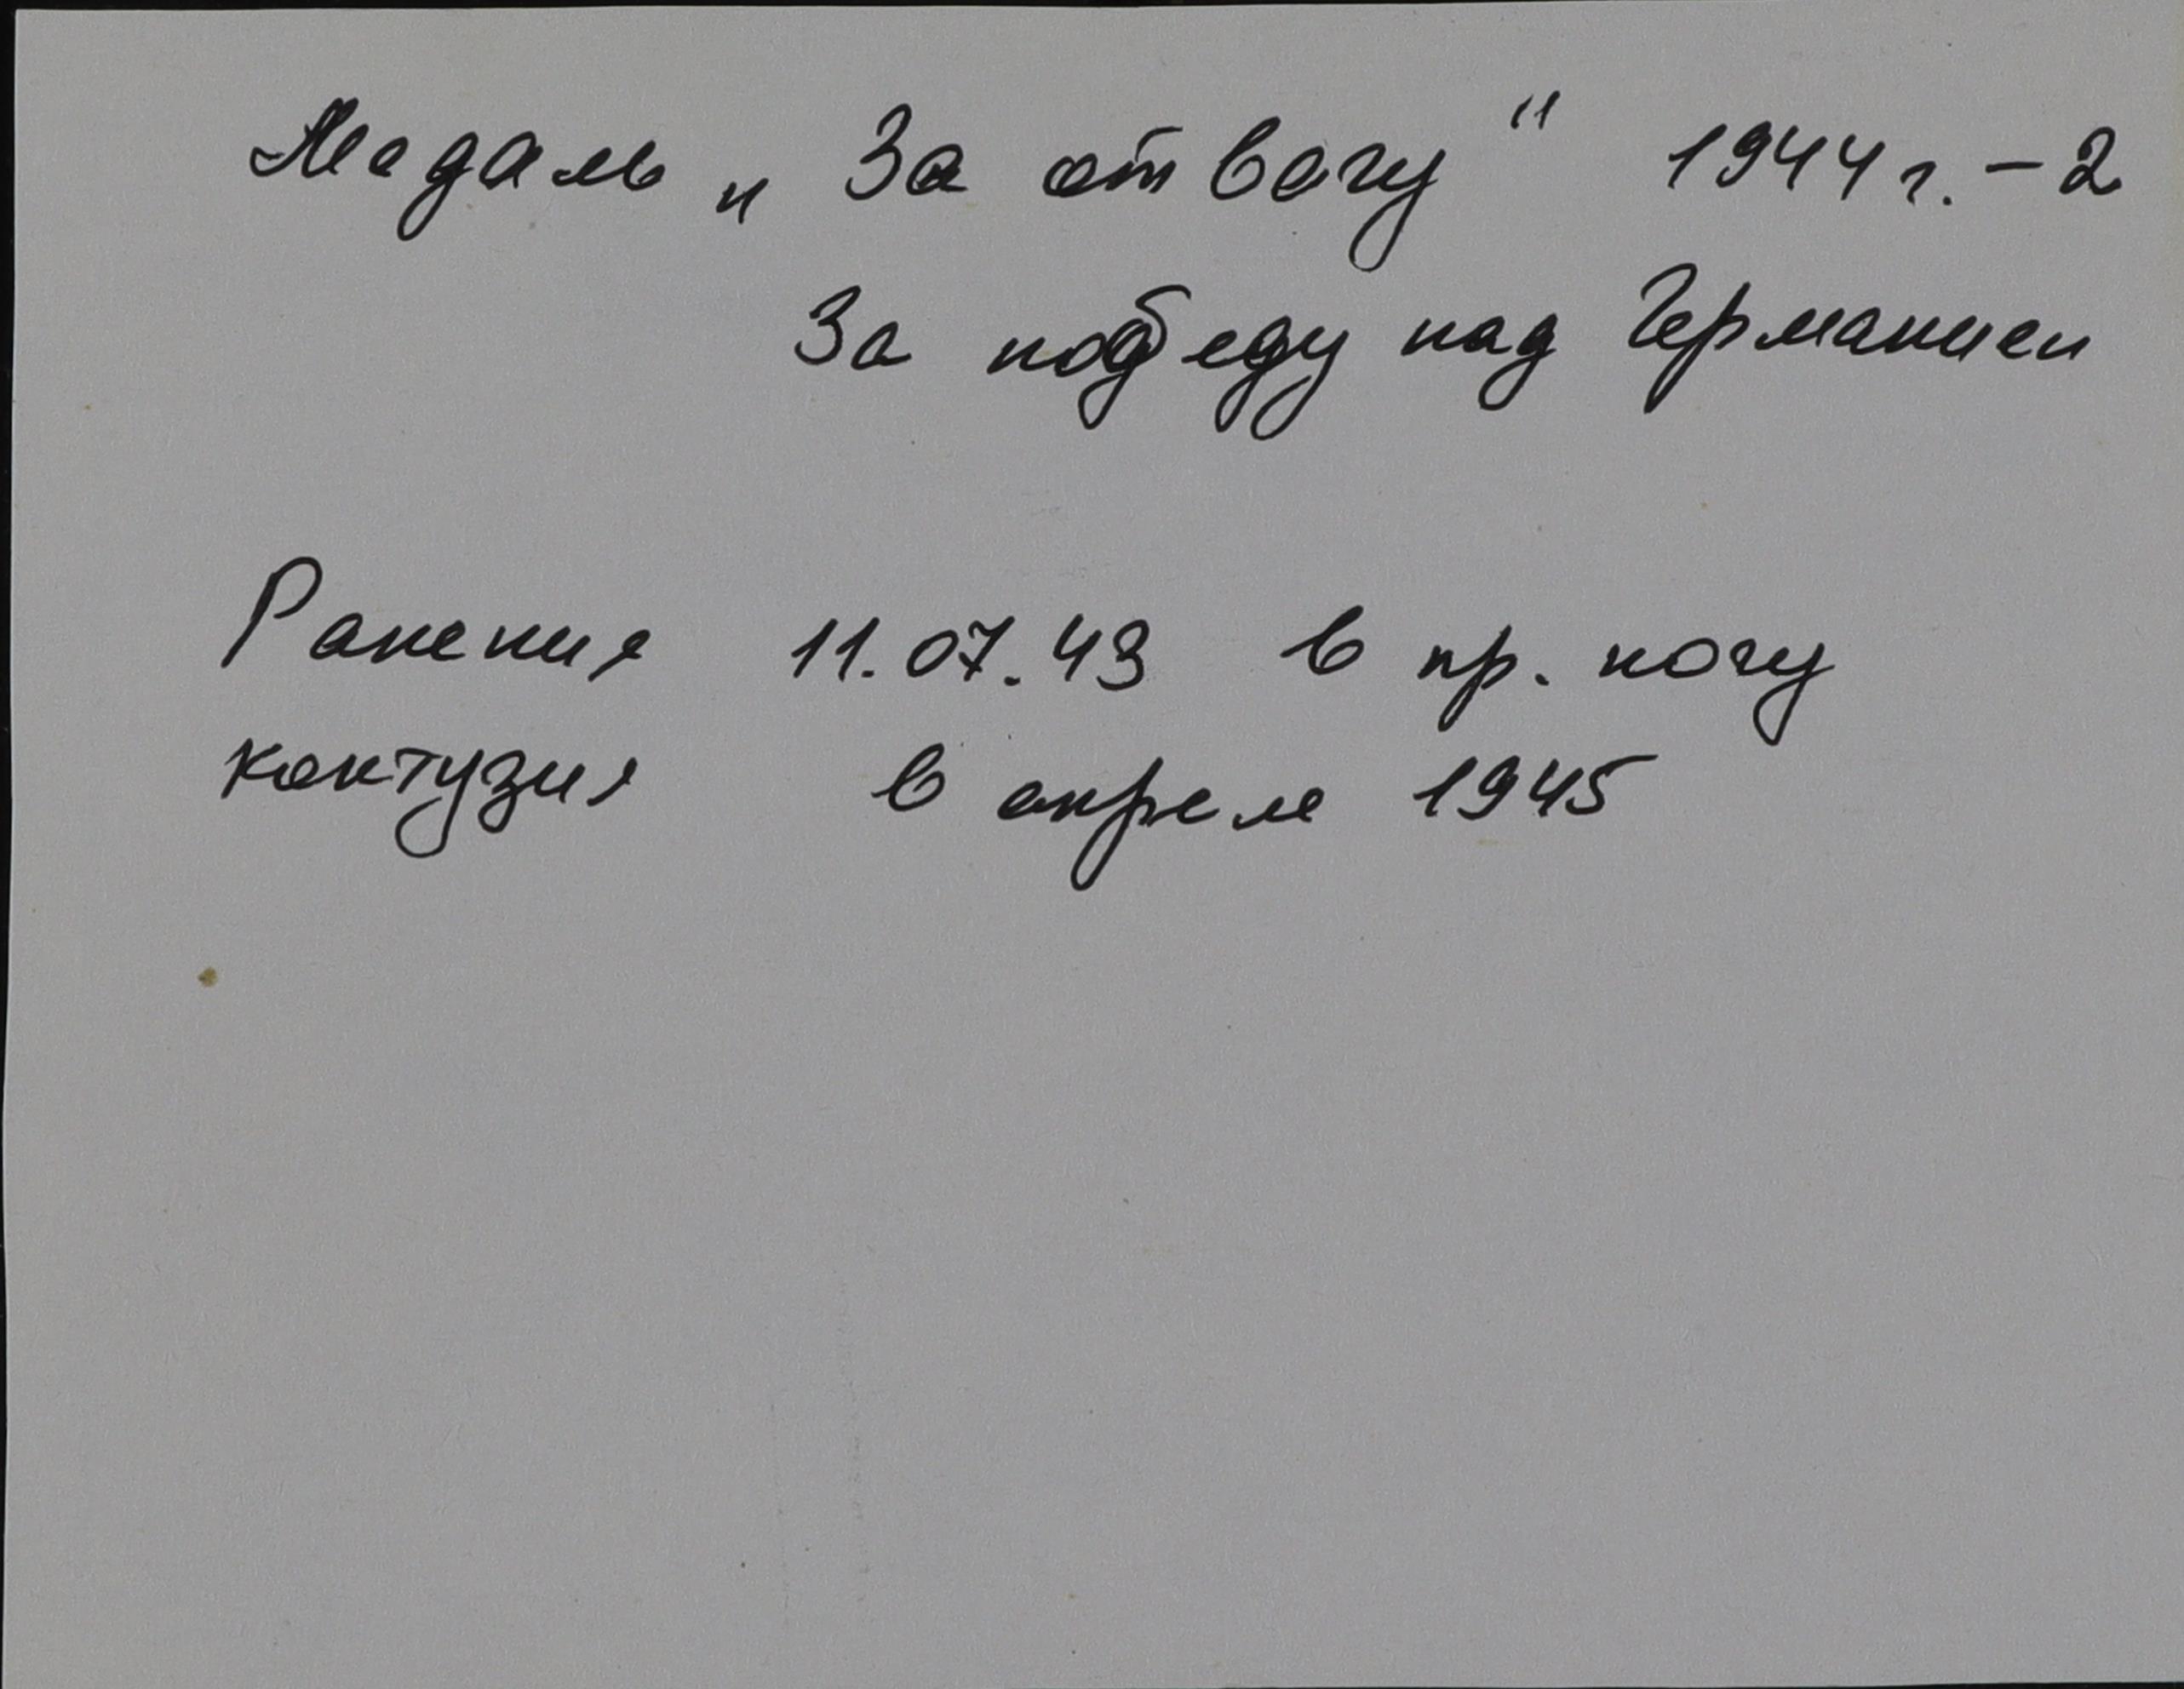 Медаль „За отвагу" 1944 г. – 2
За победу над Германией
Ранения 11.07.43 в пр. ногу
контузия в апреле 1945